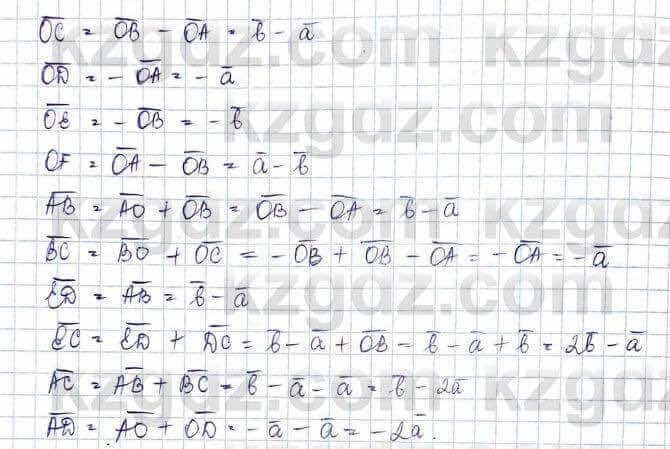 O̅C̅ = O̅B̅ - O̅A̅ = b̅ - a̅
O̅D̅ = - O̅A̅ = - a̅
O̅E̅ = - O̅B̅ = - b̅
OF = O̅A̅ - O̅B̅ = a̅ - b̅
A̅B̅ = A̅O̅ + O̅B̅ = O̅B̅ - O̅A̅ = b̅ - a̅
B̅C̅ = B̅O̅ + O̅C̅ = - O̅B̅ + O̅B̅ - O̅A̅ = - O̅A̅ = - a̅
E̅D̅ = A̅B̅ = b̅ - a̅
E̅C̅ = E̅D̅ + D̅C̅ = b̅ - a̅ + O̅B̅ = b̅ - a̅ + b̅ = 2b̅ - a̅
A̅C̅ = A̅B̅ + B̅C̅ = b̅ - a̅ - a̅ = b̅ - 2a̅
A̅D̅ = A̅O̅ + O̅D̅ = - a̅ - a̅ = - 2a̅.
kzgdz.com
kzgdz.com
kzgdz.com